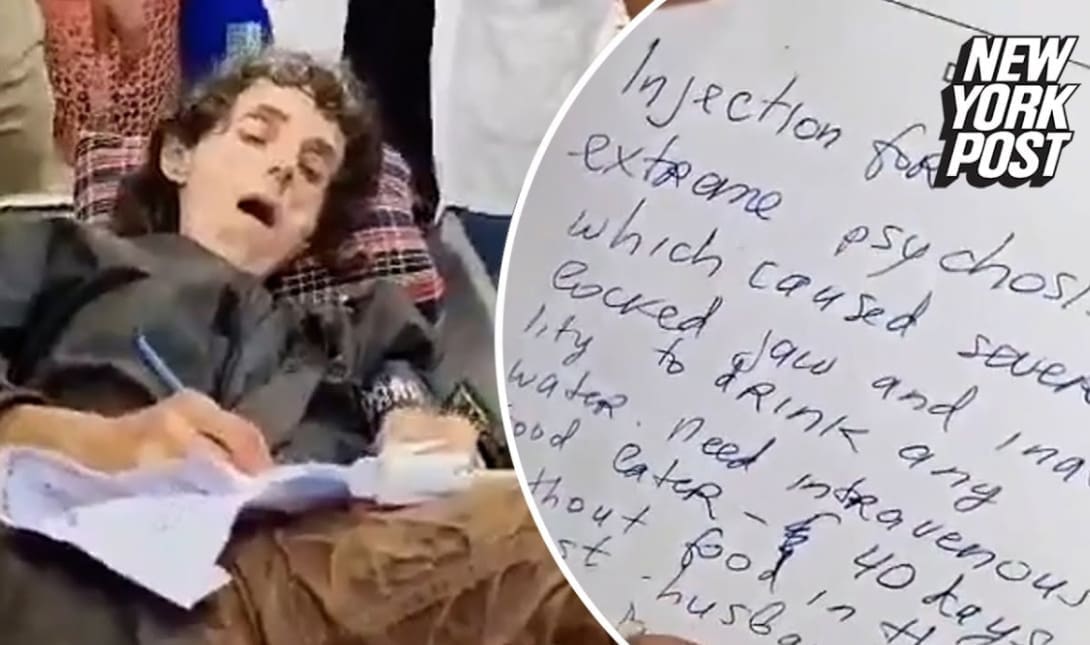 NEW
YORK
POST
Injection for
extreme psychosi
which caused sever
locked jaw and ina
lity to drink any
water. need intravenous
ood eater - 40 days
thout food in th
st. husba